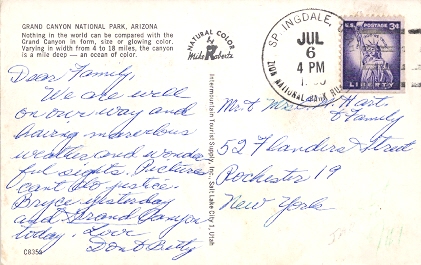 GRAND CANYON NATIONAL PARK, ARIZONA
Nothing in the world can be compared with the
Grand Canyon in form, size or glowing color.
Varying in width from 4 to 18 miles, the canyon
is a mile deep — an ocean of color.
NATURAL COLOR
by
Mike Roberts
Dear Family,
We are well
on our way and
having marvelous
weather and wonder
ful sights. Pictures
can't do justice.
Bryce yesterday
and Grand Canyon
today. Love
Don & Betty
C8356
Intermountain Tourist Supply, Inc., Salt Lake City 1, Utah
JUL
6
4 PM
ZION NATIONAL PARK
U.S. POSTAGE 3¢
LIBERTY
Mr. & Mrs. Hart
& Family
52 Flanders Street
Rochester 19
New York